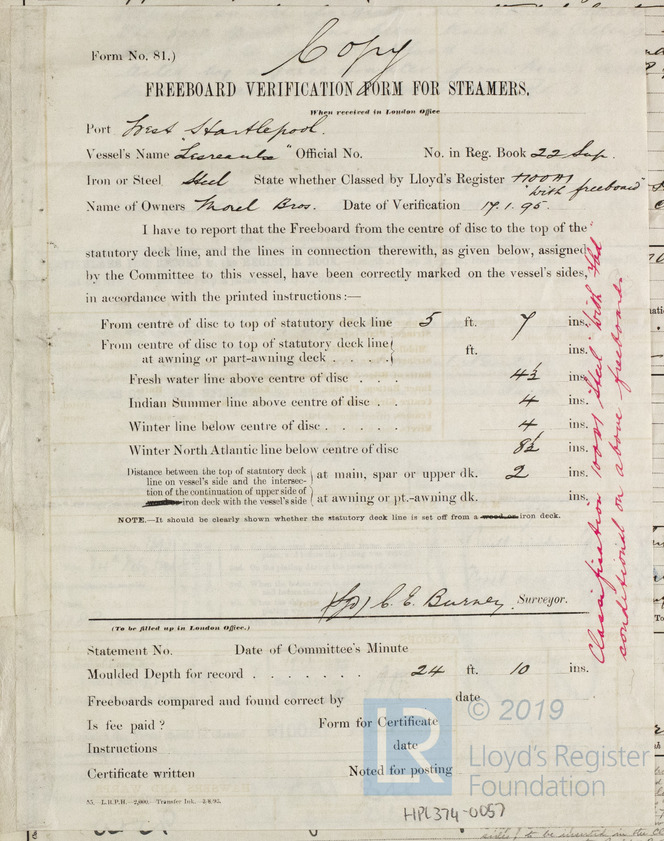 Copy
Form No. 81.)
FREEBOARD VERIFICATION FORM FOR STEAMERS.
When received in London Office
Port West Hartlepool.
Vessel's Name "Lesreaulx" Official No. No. in Reg. Book 22 Sup.
Iron or Steel Steel State whether Classed by Lloyd's Register +100A1
"with freeboard"
Name of Owners Morel Bros. Date of Verification 17.1.95.
I have to report that the Freeboard from the centre of disc to the top of the
statutory deck line, and the lines in connection therewith, as given below, assigned
by the Committee to this vessel, have been correctly marked on the vessel's sides,
in accordance with the printed instructions:—
From centre of disc to top of statutory deck line 5 ft. 7 ins.
From centre of disc to top of statutory deck line
at awning or part-awning deck . . . . ft. ins.
Fresh water line above centre of disc . . . 4½ ins.
Indian Summer line above centre of disc . . 4 ins.
Winter line below centre of disc . . . . . 4 ins.
Winter North Atlantic line below centre of disc 8½ ins.
Distance between the top of statutory deck
line on vessel's side and the intersec-
tion of the continuation of upper side of
iron deck with the vessel's side
at main, spar or upper dk. 2 ins.
at awning or pt.-awning dk. ins.
NOTE.—It should be clearly shown whether the statutory deck line is set off from a wood or iron deck.
(sgd) C. E. Burney Surveyor.
(To be filled up in London Office.)
Statement No. Date of Committee's Minute
Moulded Depth for record . . . . . . . 24 ft. 10 ins.
Freeboards compared and found correct by date
Is fee paid? Form for Certificate
Instructions date
Certificate written Noted for posting
55.—L.R.P.H.—2,000.—Transfer Ink.—3/4/93.
Classification 100A1 "Steel" "with fbd"
conditional on above freeboard.
LR
© 2019
Lloyd's Register
Foundation
HPL374-0057